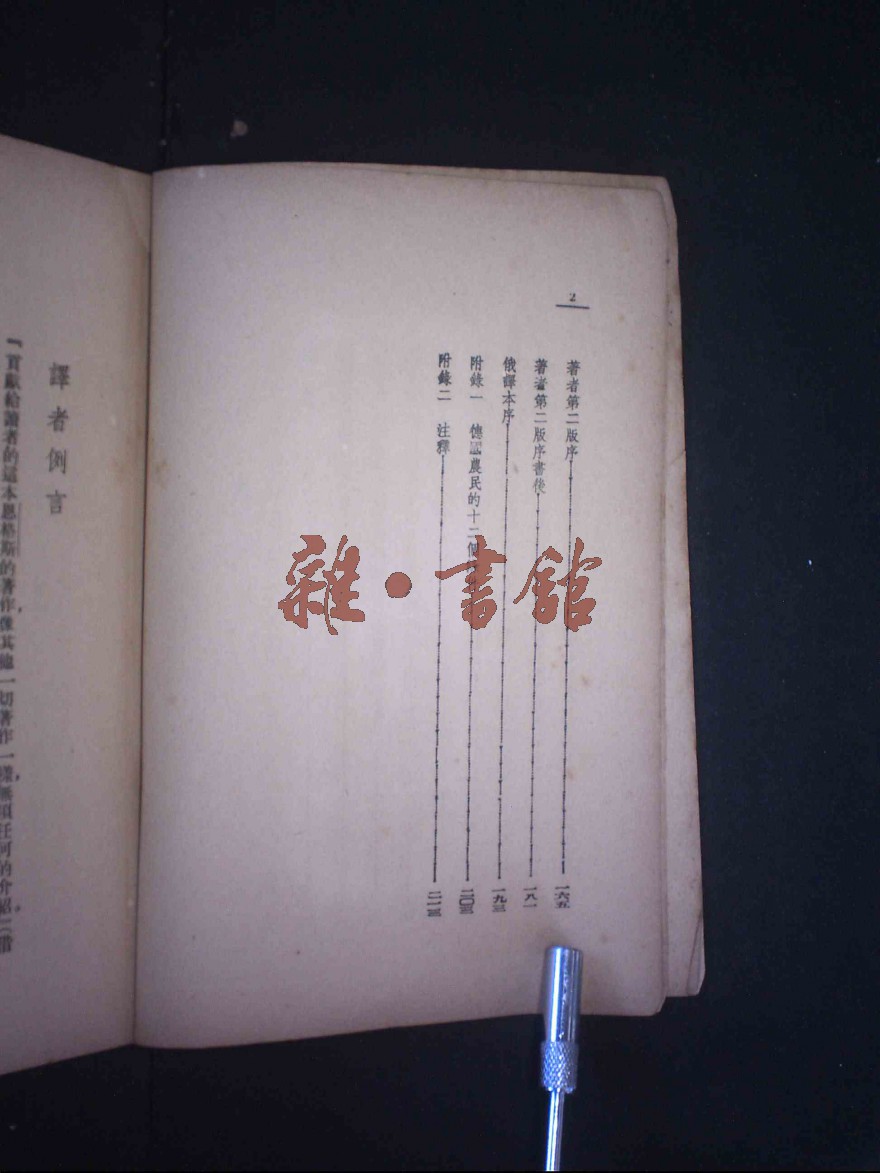 2
著者第二版序 一六五
著者第二版序書後 一八一
俄譯本序 一九三
附錄一 德國農民的十二個 二〇三
附錄二 注釋 二一三
譯者例言
『貢獻給讀者的這本恩格斯的著作，像其他一切著作一樣，無須任何的介紹。
雜·書館